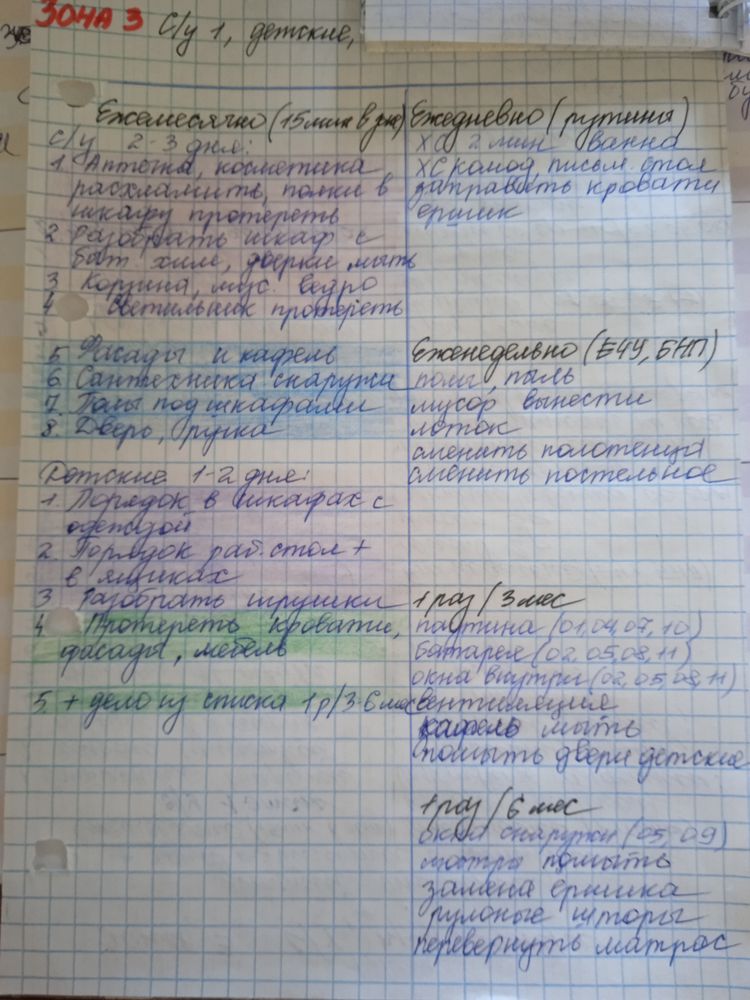 ЗОНА 3 С/у 1, детские,
Ежемесячно (15 мин в день)
С/у 2-3 дня:
1. Аптечка, косметика
расхламить, полки в
шкафу протереть
2. Разобрать шкаф с
быт. хим., дверки мыть
3 Корзина, мус. ведро
4 Светильник протереть
5. Фасады и кафель
6. Сантехника снаружи
7. Полы под шкафами
8. Дверь, ручка
Детские 1-2 дня:
1. Порядок в шкафах с
одеждой
2. Порядок раб. стол +
в ящиках
3 Разобрать игрушки
4 Протереть кровати,
фасады, мебель
5. + дело из списка 1р/3-6 мес
Ежедневно (рутина)
ХС 2 мин ванна
ХС комод, письм. стол
заправить кровати
ёршик
Еженедельно (БЧУ, БНП)
полы, пыль
мусор вынести
лоток
сменить полотенца
сменить постельное
1 раз / 3 мес
паутина (01,04,07,10)
батарея (02,05,08,11)
окна внутри (02,05,08,11)
вентиляция
кафель мыть
помыть двери детские
1 раз / 6 мес
окна снаружи (05,09)
люстры помыть
замена ёршика
рулонные шторы
перевернуть матрас